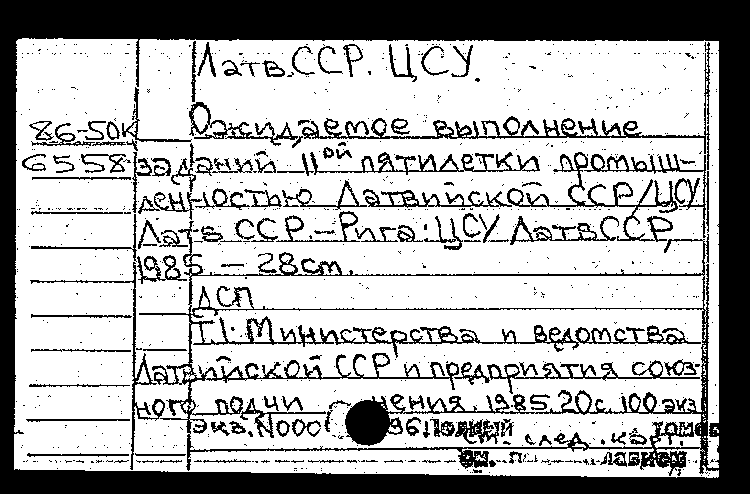 Латв.ССР. ЦСУ.
86-50К Ожидаемое выполнение
6558 заданий 11ой пятилетки промыш-
ленностью Латвийской ССР/ЦСУ
Латв ССР.-Рига: ЦСУ ЛатвССР,
1985. - 28см.
ДСП.
Т.1: Министерства и ведомства
Латвийской ССР и предприятия союз-
ного подчинения. 1985. 20с. 100экз
экз.N000 96. Полный
см. след. карт.
см.